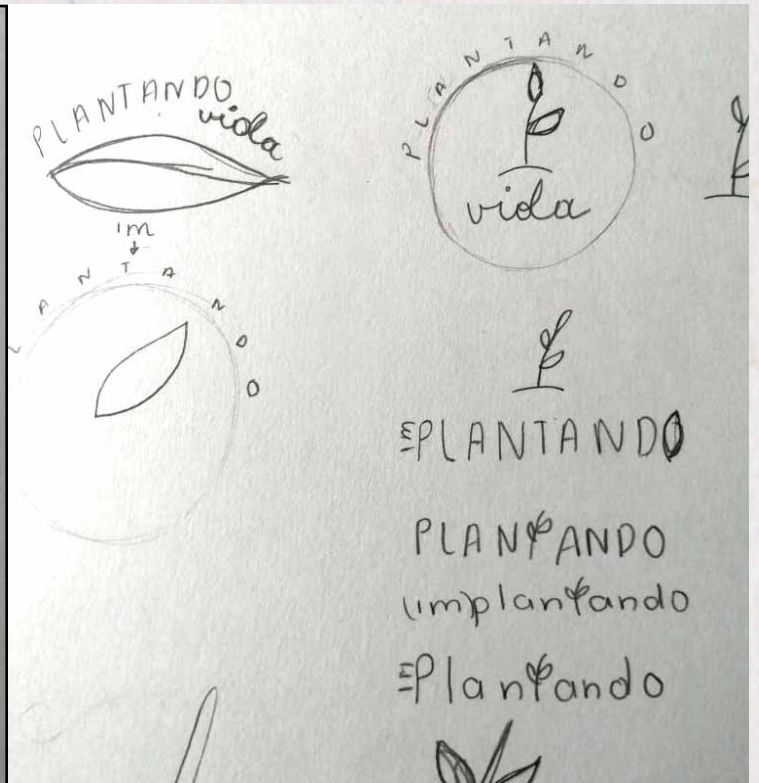 PLANTANDO
vida
PLANTANDO
vida
im
LANTANDO
imPLANTANDO
PLANTANDO
(im)plantando
imPlantando